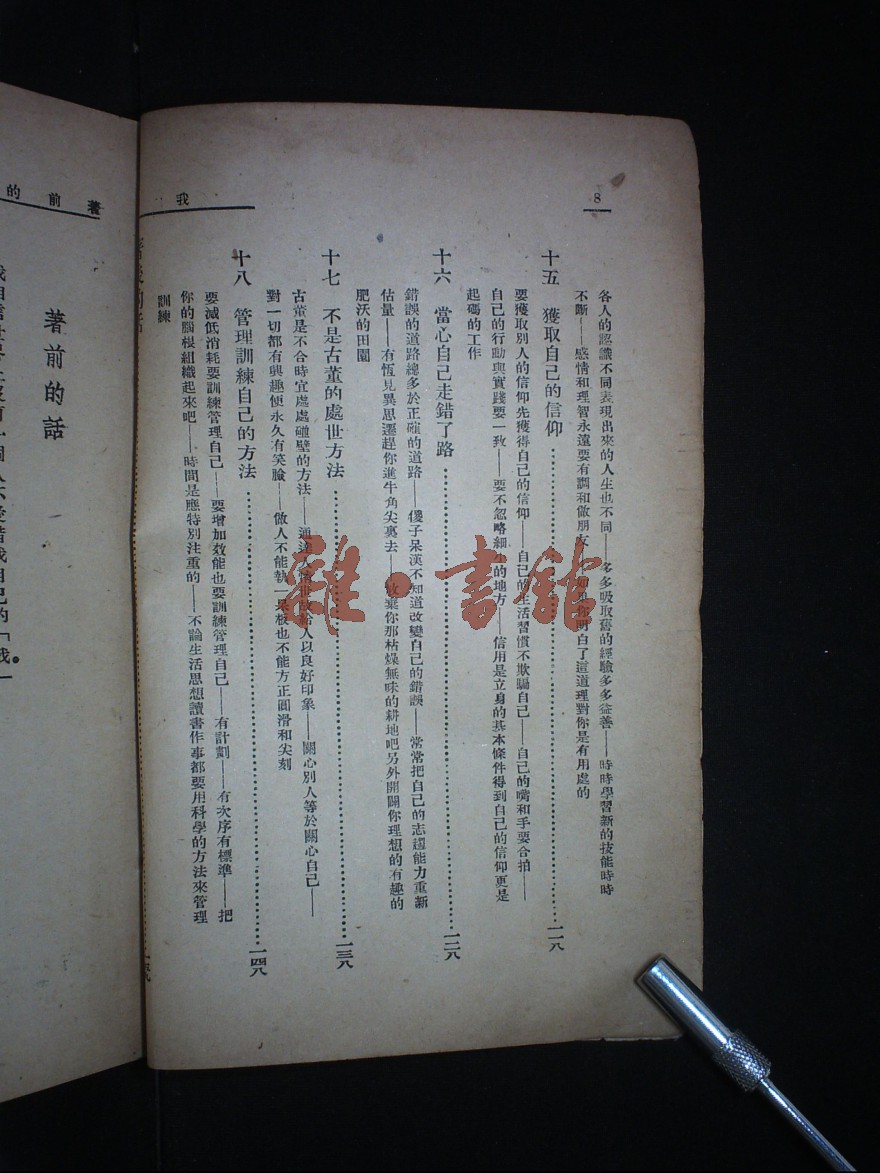 8
我
各人的認識不同表現出來的人生也不同——多多吸取舊的經驗多多益善——時時學習新的技能時時
不斷——感情和理智永遠要有調和做朋友——如果你明白了這道理對你是有用處的
十五 獲取自己的信仰…………一一八
要獲取別人的信仰先獲得自己的信仰——自己的生活習慣不欺騙自己——自己的嘴和手要合拍——
自己的行動與實踐要一致——要不忽略細小的地方——信用是立身的基本條件得到自己的信仰更是
起碼的工作
十六 當心自己走錯了路…………一二八
錯誤的道路總多於正確的道路——傻子呆漢不知道改變自己的錯誤——常常把自己的志趣能力重新
估量——有恆見異思遷趕你進牛角尖裏去——放棄你那枯燥無味的耕地吧另外開闢你理想的有趣的
肥沃的田園
十七 不是古董的處世方法…………一三八
古董是不合時宜處處碰壁的方法——通達人情世故給人以良好印象——關心別人等於關心自己——
對一切都有興趣便永久有笑臉——做人不能執一呆板也不能方正圓滑和尖刻
十八 管理訓練自己的方法…………一四八
要減低消耗要訓練管理自己——要增加效能也要訓練管理自己——有計劃——有次序有標準——把
你的腦根組織起來吧——時間是應特別注重的——不論生活思想讀書作事都要用科學的方法來管理
訓練
著前的
著前的話
雜·書館